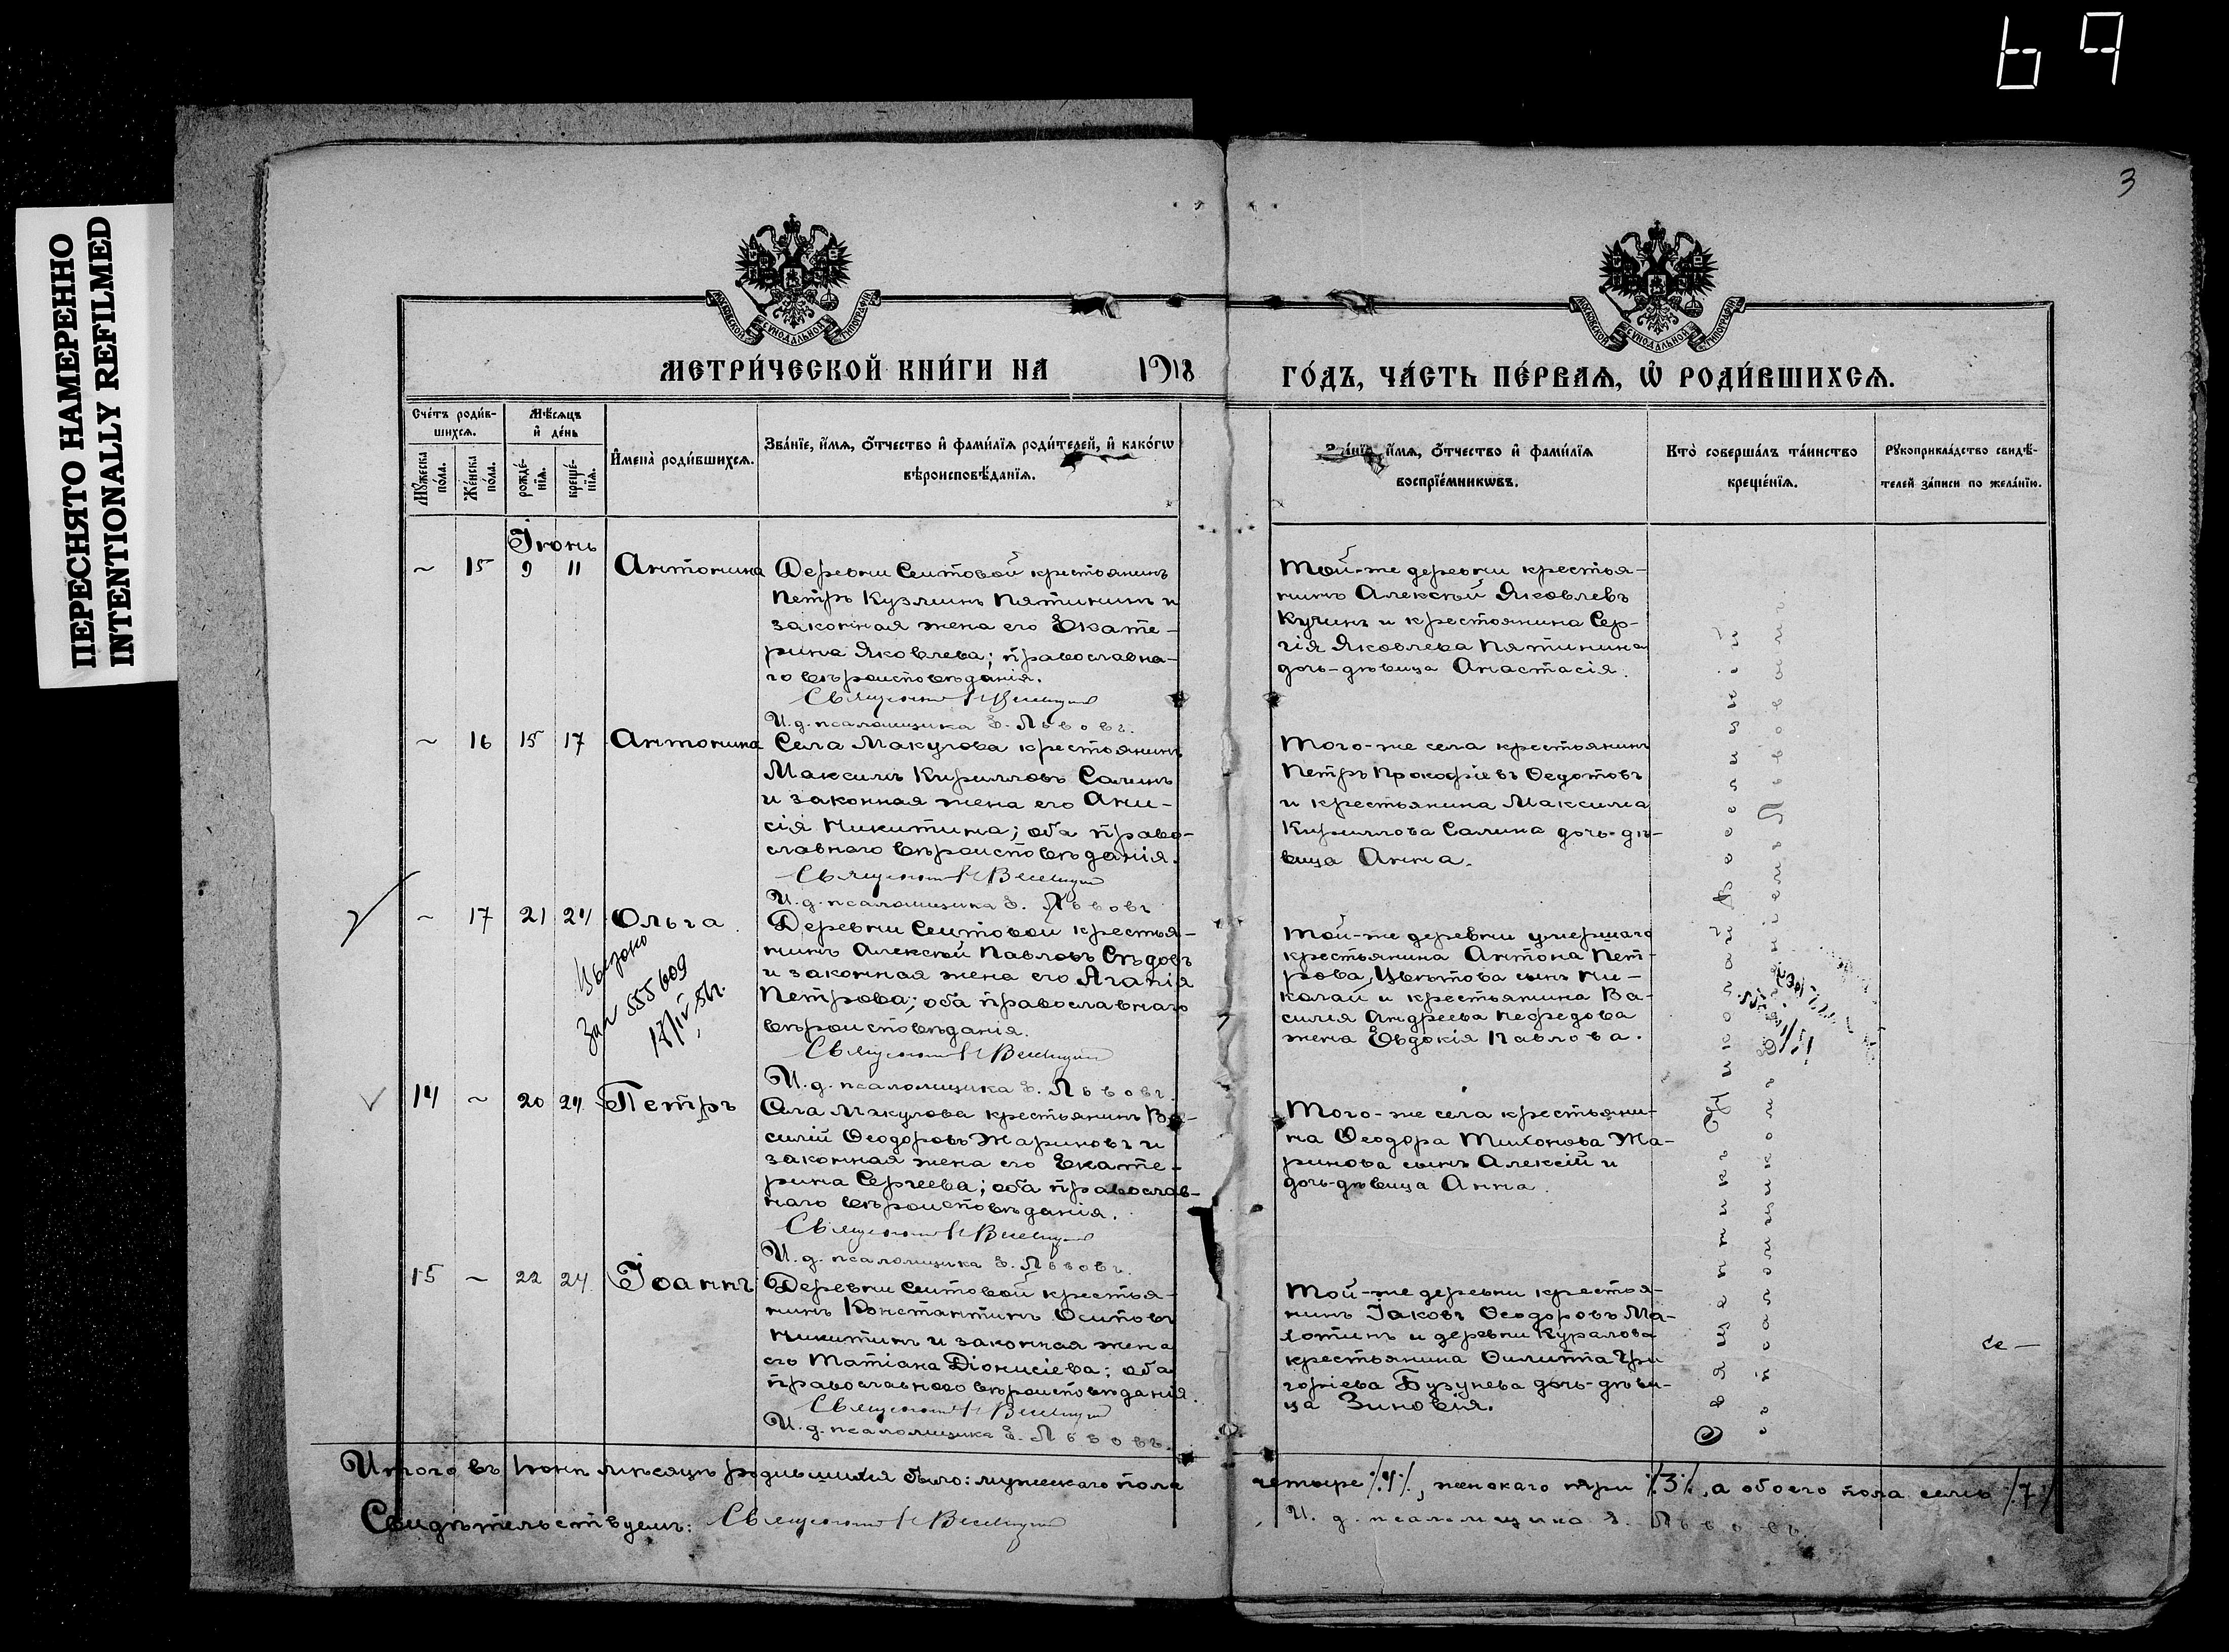 69
3
ПЕРЕСНЯТО НАМЕРЕННО
INTENTIONALLY REFILMED
МОСКОВСКОЙ СѴНОДАЛЬНОЙ ТИПОГРАФІИ
МОСКОВСКОЙ СѴНОДАЛЬНОЙ ТИПОГРАФІИ
МЕТРИ́ЧЕСКОЙ КНИ́ГИ НА 1918 ГО́ДЪ, ЧА́СТЬ ПЕ́РВАѦ, Ѡ РОДИ́ВШИХСѦ.
Сче́тъ роди́в-
шихсѧ.
Мѣ́сѧцъ
и де́нь
Мꙋ́жеска
по́ла.
Же́нска
по́ла.
рожде́-
нїѧ.
креще́-
нїѧ.
И҆мена̀ роди́вшихсѧ.
Зва́нїе, и҆́мѧ, ѻ҆́тчество и҆ фами́лїѧ роди́телей, и҆ како́гѡ
вѣроисповѣ́данїѧ.
Зва́нїе, и҆́мѧ, ѻ҆́тчество и҆ фами́лїѧ
воспрїе́мникѡвъ.
Кто̀ соверша́лъ та́инство
креще́нїѧ.
Рꙋкоприкла́дство свидѣ́-
телей за́писи по жела́нїю.
Іюнь
~ 15 9 11 Антонина
Деревни Сеитовой крестьянинъ
Петръ Кузминъ Пятининъ и
законная жена его Екате-
рина Яковлева; православна-
го вѣроисповѣданія.
Священникъ Н.
И. д. псаломщика Е. Львовъ.
Той-же деревни крестья-
нинъ Алексѣй Яковлевъ
Кучинъ и крестьянина Сер-
гія Яковлева Пятинина
дочь-дѣвица Анастасія.
~ 16 15 17 Антонина
Села Макулова крестьянинъ
Максимъ Кирилловъ Салинъ
и законная жена его Ани-
сія Никитина; оба право-
славнаго вѣроисповѣданія.
Священникъ Н.
И. д. псаломщика Е. Львовъ
Того-же села крестьянинъ
Петръ Прокофіевъ Ѳедотовъ
и крестьянина Максима
Кириллова Салина дочь-дѣ-
вица Анна.
~ 17 21 24 Ольга
Деревни Сеитовой крестья-
нинъ Алексѣй Павловъ Сѣдовъ
и законная жена его Агапія
Петрова; оба православнаго
вѣроисповѣданія.
Священникъ Н.
И. д. псаломщика Е. Львовъ.
Той-же деревни умершаго
крестьянина Антона Пет-
рова Цвѣтова сынъ Ни-
колай и крестьянина Ва-
силія Андреева Нефедова
жена Евдокія Павлова.
555609
14 ~ 20 24 Петръ
Села Макулова крестьянинъ Ва-
силій Ѳеодоровъ Жариновъ и
законная жена его Екате-
рина Сергеева; оба православ-
наго вѣроисповѣданія.
Священникъ Н.
И. д. псаломщика Е. Львовъ.
Того-же села крестьяни-
на Ѳеодора Тихонова Жа-
ринова сынъ Алексій и
дочь-дѣвица Анна.
15 ~ 22 24 Іоаннъ
Деревни Сеитовой крестья-
нинъ Константинъ Осиповъ
Никитинъ и законная жена
его Татіана Діонисіева; оба
православнаго вѣроисповѣданія.
Священникъ Н.
И. д. псаломщика Е. Львовъ.
Той-же деревни крестья-
нинъ Іаковъ Ѳеодоровъ Ма-
лотинъ и деревни Куралова
крестьянина Филиппа Гри
горіева Бузунева дочь-дѣви-
ца Зиновія.
Священникъ Николай
со псаломщикомъ Львовымъ.
Итого въ Іюнѣ мѣсяцѣ родившихся было: мужескаго пола четыре /4/, женскаго три /3/, а обоего пола семь /7/
Свидѣтельствуемъ: Священникъ Н.
И. д. псаломщика Е. Львовъ.